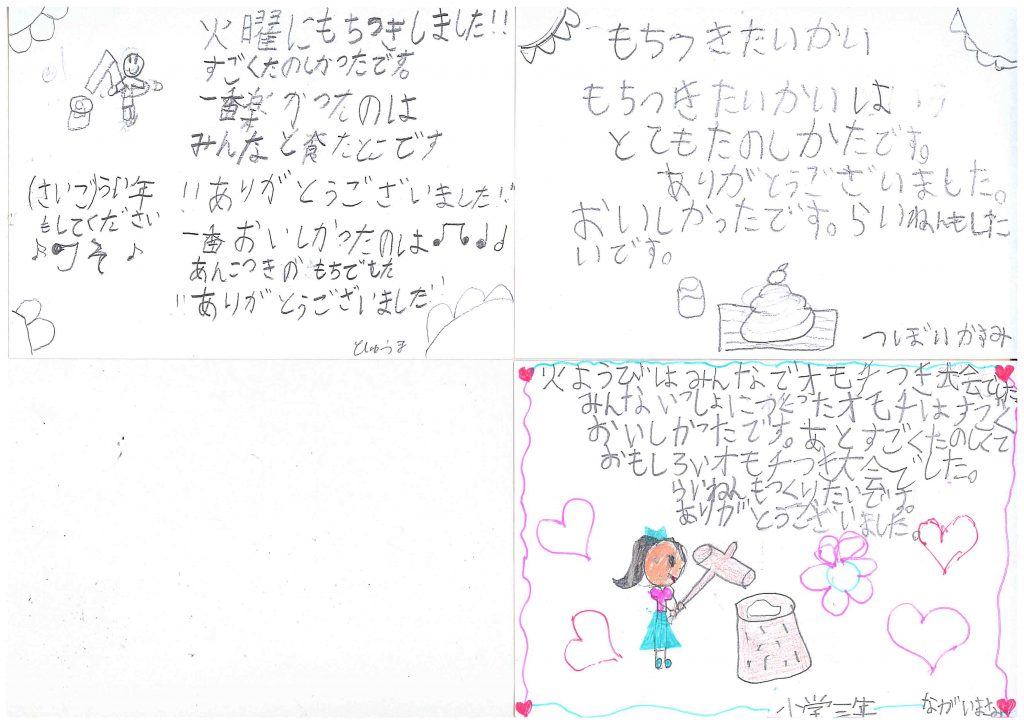 火曜にもちつきしました!!
すごくたのしかったです。
一番楽かったのは
みんなと食たとこです
!!ありがとうございました!!
一番おいしかったのは
あんこつきのもちでもた
!!ありがとうございました!!
(さいご)らい年
もしてください
としゅうま
もちつきたいかい
もちつきたいかいは
とてもたのしかたです。
ありがとうございまもた。
おいしかったです。らいねんもしたい
いです。
つぼいかすみ
火ようびはみんなでオモチつき大会でした
みんないっしょにつくったオモチはすごく
おいしかったです。あとすごくたのしくて
おもしろいオモチつき大会でした。
らいねんもつくりたいです。
ありがとうございました。
小学三年 ながい